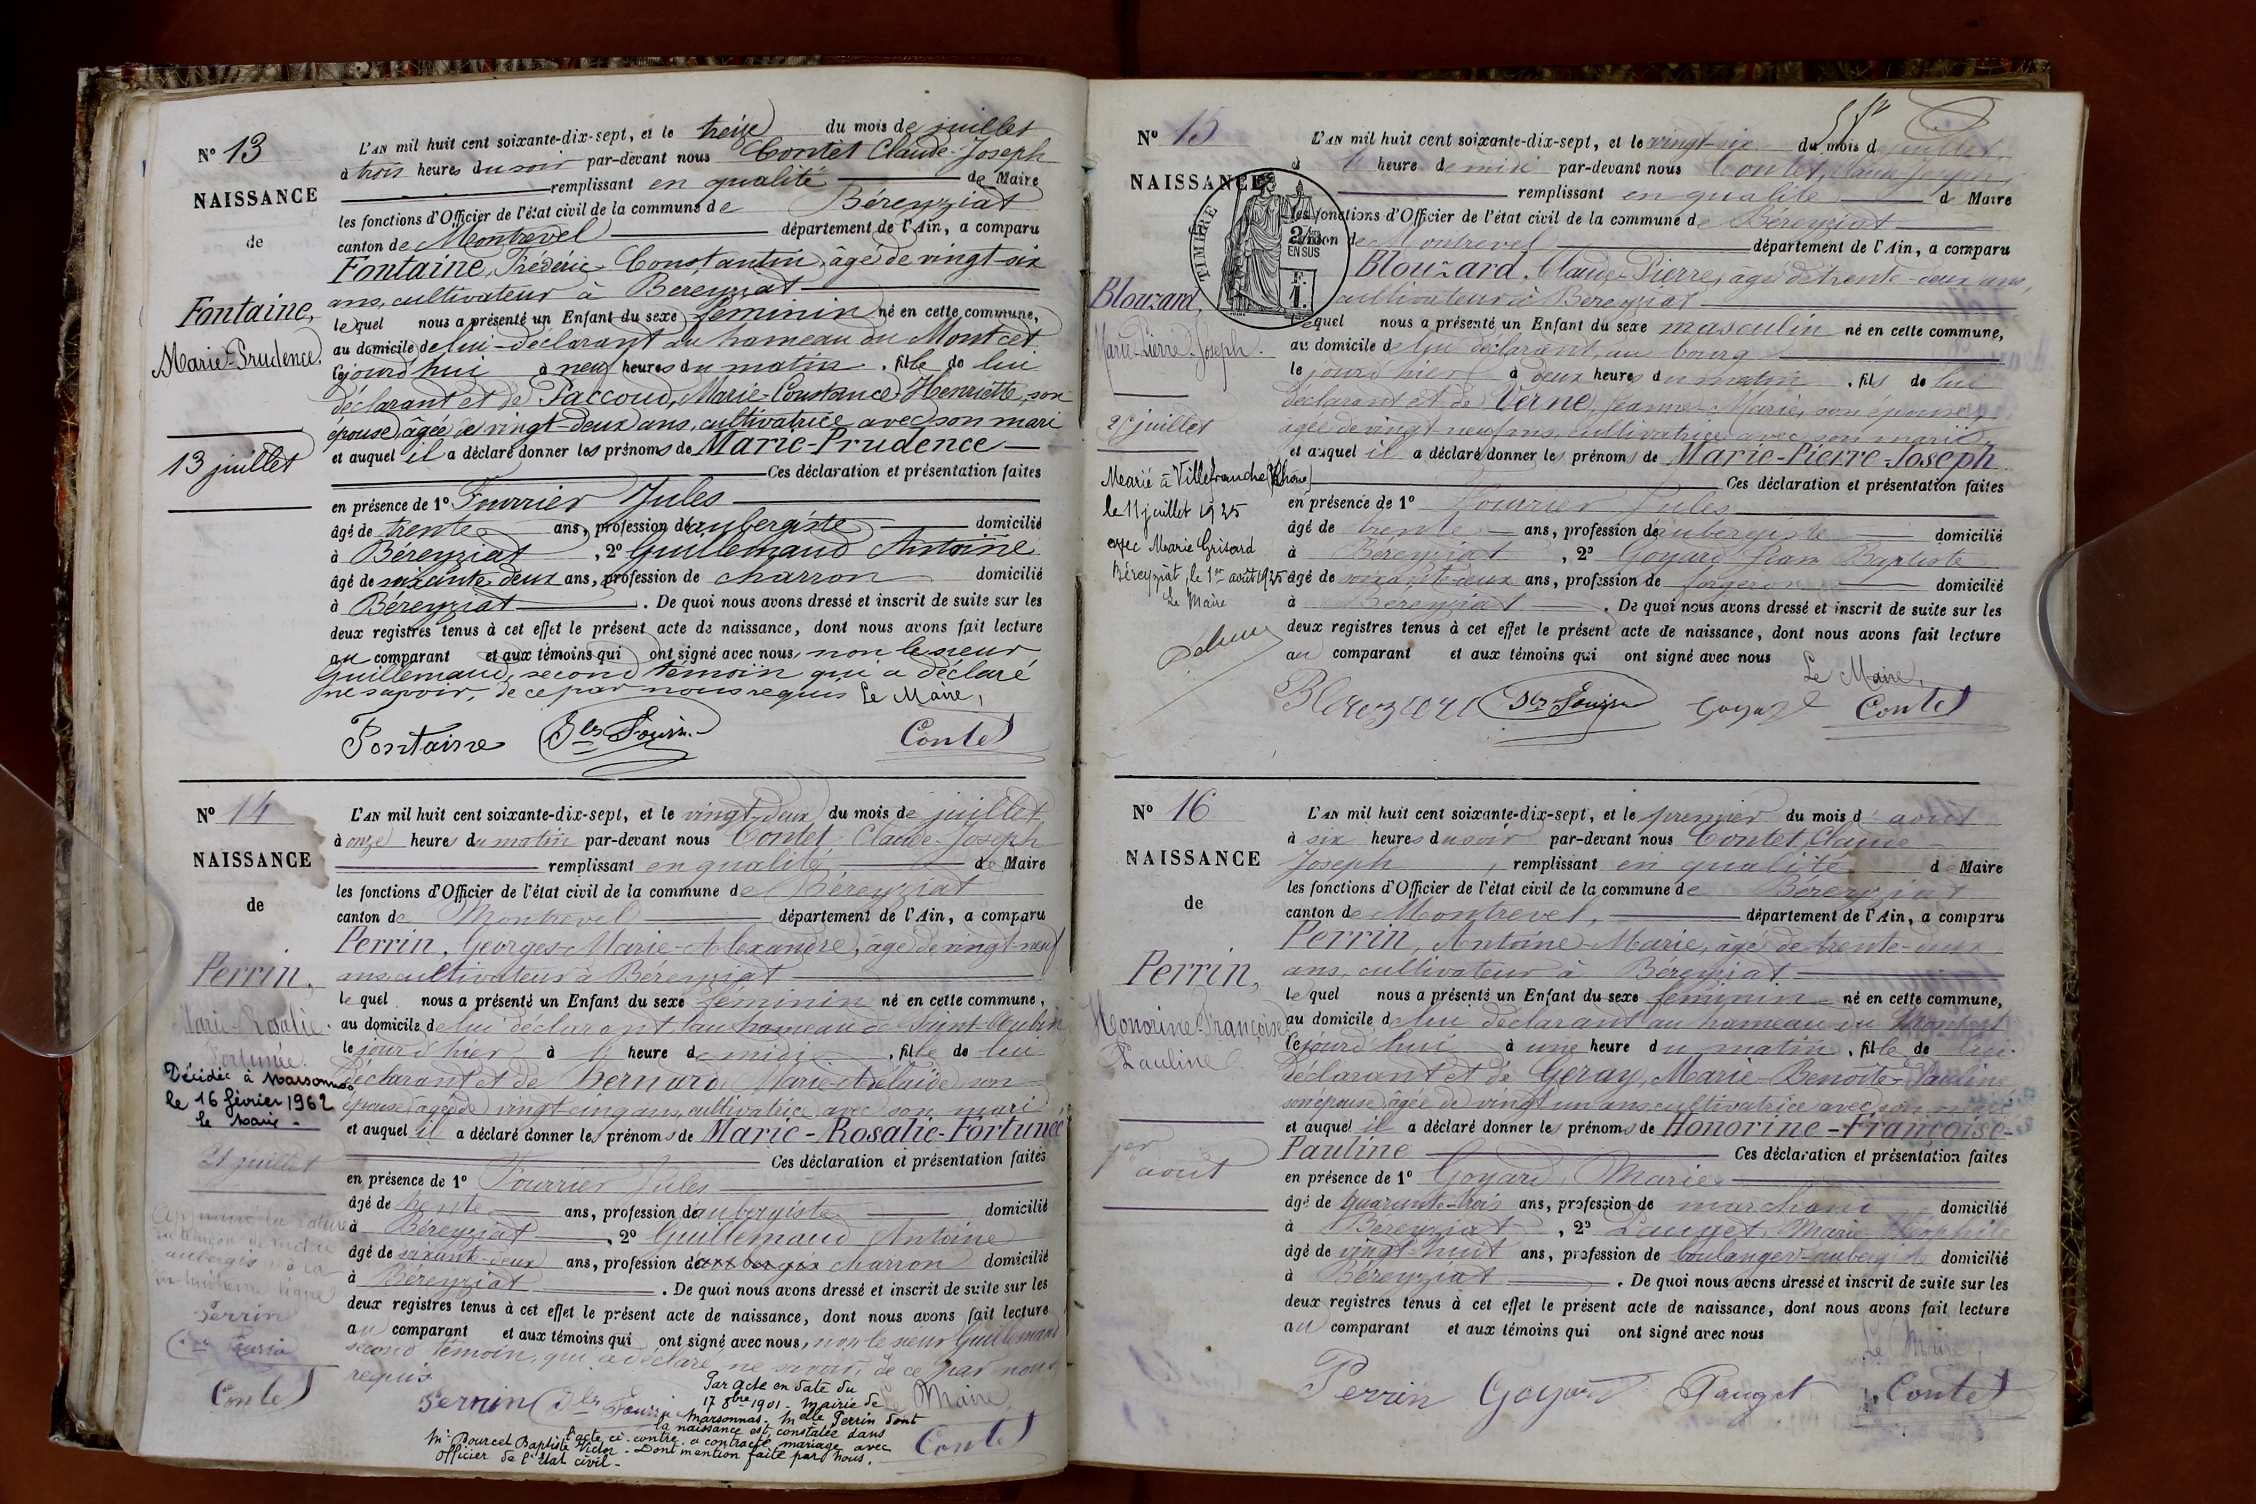 N° 13
NAISSANCE
de
Fontaine,
Marie-Prudence.
13 juillet
L'AN mil huit cent soixante-dix-sept, et le treize du mois de juillet
à trois heures du soir par-devant nous Contet Claude-Joseph
remplissant en qualité de Maire
les fonctions d'Officier de l'état civil de la commune de Béreyziat
canton de Montrevel département de l'Ain, a comparu
Fontaine, Frédéric-Constantin, âgé de vingt-six
ans, cultivateur à Béreyziat
lequel nous a présenté un Enfant du sexe féminin né en cette commune,
au domicile de lui-déclarant au hameau du Montcet
cejourd'hui à neuf heures du matin, fille de lui
déclarant et de Paccoud, Marie-Constance-Henriette, son
épouse, âgée de vingt-deux ans, cultivatrice avec son mari
et auquel il a déclaré donner les prénoms de Marie-Prudence
Ces déclaration et présentation faites
en présence de 1° Fourrier Jules
âgé de trente ans, profession d'aubergiste domicilié
à Béreyziat, 2° Guillemaud Antoine
âgé de soixante-deux ans, profession de charron domicilié
à Béreyziat. De quoi nous avons dressé et inscrit de suite sur les
deux registres tenus à cet effet le présent acte de naissance, dont nous avons fait lecture
au comparant et aux témoins qui ont signé avec nous, non le sieur
Guillemaud, second témoin qui a déclaré
ne savoir, de ce par nous requis Le Maire,
Fontaine Contet
N° 14
NAISSANCE
de
Perrin,
Marie-Rosalie-
Fortunée.
Décédée à Marsonnas
le 16 février 1962
le Maire -
21 juillet
Perrin
Contet
L'AN mil huit cent soixante-dix-sept, et le vingt-deux du mois de juillet
à onze heures du matin par-devant nous Contet Claude-Joseph
remplissant en qualité de Maire
les fonctions d'Officier de l'état civil de la commune de Béreyziat
canton de Montrevel département de l'Ain, a comparu
Perrin, Georges-Marie-Alexandre, âgé de vingt-neuf
ans, cultivateur à Béreyziat
lequel nous a présenté un Enfant du sexe féminin né en cette commune,
au domicile de lui déclarant au hameau de Saint-Aubin
le jour d'hier à heure de midi, fille de lui
déclarant et de Bernard Marie-Adelaïde son
épouse, âgée de vingt-cinq ans, cultivatrice avec son mari
et auquel il a déclaré donner les prénoms de Marie-Rosalie-Fortunée
Ces déclaration et présentation faites
en présence de 1° Fourrier Jules
âgé de trente ans, profession d'aubergiste domicilié
à Béreyziat, 2° Guillemaud Antoine
âgé de soixante-deux ans, profession de charron domicilié
à Béreyziat. De quoi nous avons dressé et inscrit de suite sur les
deux registres tenus à cet effet le présent acte de naissance, dont nous avons fait lecture
au comparant et aux témoins qui ont signé avec nous, non le sieur Guillemaud
second témoin, qui a déclaré ne savoir, de ce par nous
requis
Perrin Le Maire,
Contet
Par acte en date du
17 8bre 1901 - Mairie de
Marsonnas - Melle Perrin dont
la naissance est constatée dans
l'acte ci-contre a contracté mariage avec
Mr Bourcet Baptiste Victor - Dont mention faite par nous,
officier de l'état civil -
N° 15
NAISSANCE
TIMBRE
2/10es
EN SUS
F.
1.
Blouzard,
Marie-Pierre-Joseph.
25 juillet
Marié à Villefranche (Rhône)
le 11 juillet 1925
avec Marie Grisard
Béreyziat, le 1er août 1925
Le Maire
L'AN mil huit cent soixante-dix-sept, et le vingt-six du mois de juillet
à heure de midi par-devant nous Contet, Claude-Joseph
remplissant en qualité de Maire
les fonctions d'Officier de l'état civil de la commune de Béreyziat
canton de Montrevel département de l'Ain, a comparu
Blouzard, Claude-Pierre, âgé de trente-deux ans,
cultivateur à Béreyziat
lequel nous a présenté un Enfant du sexe masculin né en cette commune,
au domicile de lui déclarant, au bourg
le jour d'hier à deux heures du matin, fils de lui
déclarant et de Verne, Jeanne-Marie, son épouse,
âgée de vingt-neuf ans, cultivatrice avec son mari
et auquel il a déclaré donner les prénoms de Marie-Pierre-Joseph
Ces déclaration et présentation faites
en présence de 1° Fourrier Jules
âgé de trente ans, profession d'aubergiste domicilié
à Béreyziat, 2° Goyard Jean Baptiste
âgé de soixante-deux ans, profession de forgeron domicilié
à Béreyziat. De quoi nous avons dressé et inscrit de suite sur les
deux registres tenus à cet effet le présent acte de naissance, dont nous avons fait lecture
au comparant et aux témoins qui ont signé avec nous
Le Maire,
Blouzard Goyard Contet
N° 16
NAISSANCE
de
Perrin,
Honorine-Françoise
Pauline
1er
août
L'AN mil huit cent soixante-dix-sept, et le premier du mois d'août
à six heures du soir par-devant nous Contet, Claude-
Joseph, remplissant en qualité de Maire
les fonctions d'Officier de l'état civil de la commune de Béreyziat
canton de Montrevel, département de l'Ain, a comparu
Perrin, Antoine-Marie, âgé de trente-deux
ans, cultivateur à Béreyziat
lequel nous a présenté un Enfant du sexe féminin né en cette commune,
au domicile de lui déclarant au hameau du Montcet
cejourd'hui à une heure du matin, fille de lui
déclarant et de Geray, Marie-Benoite-Pauline
son épouse, âgée de vingt un ans cultivatrice avec son mari
et auquel il a déclaré donner les prénoms de Honorine-Françoise-
Pauline Ces déclaration et présentation faites
en présence de 1° Goyard, Marie
âgé de quarante-trois ans, profession de marchand domicilié
à Béreyziat, 2° Pauget, Marie Théophile
âgé de vingt-huit ans, profession de boulanger-aubergiste domicilié
à Béreyziat. De quoi nous avons dressé et inscrit de suite sur les
deux registres tenus à cet effet le présent acte de naissance, dont nous avons fait lecture
au comparant et aux témoins qui ont signé avec nous
Le Maire,
Perrin Goyard Pauget Contet